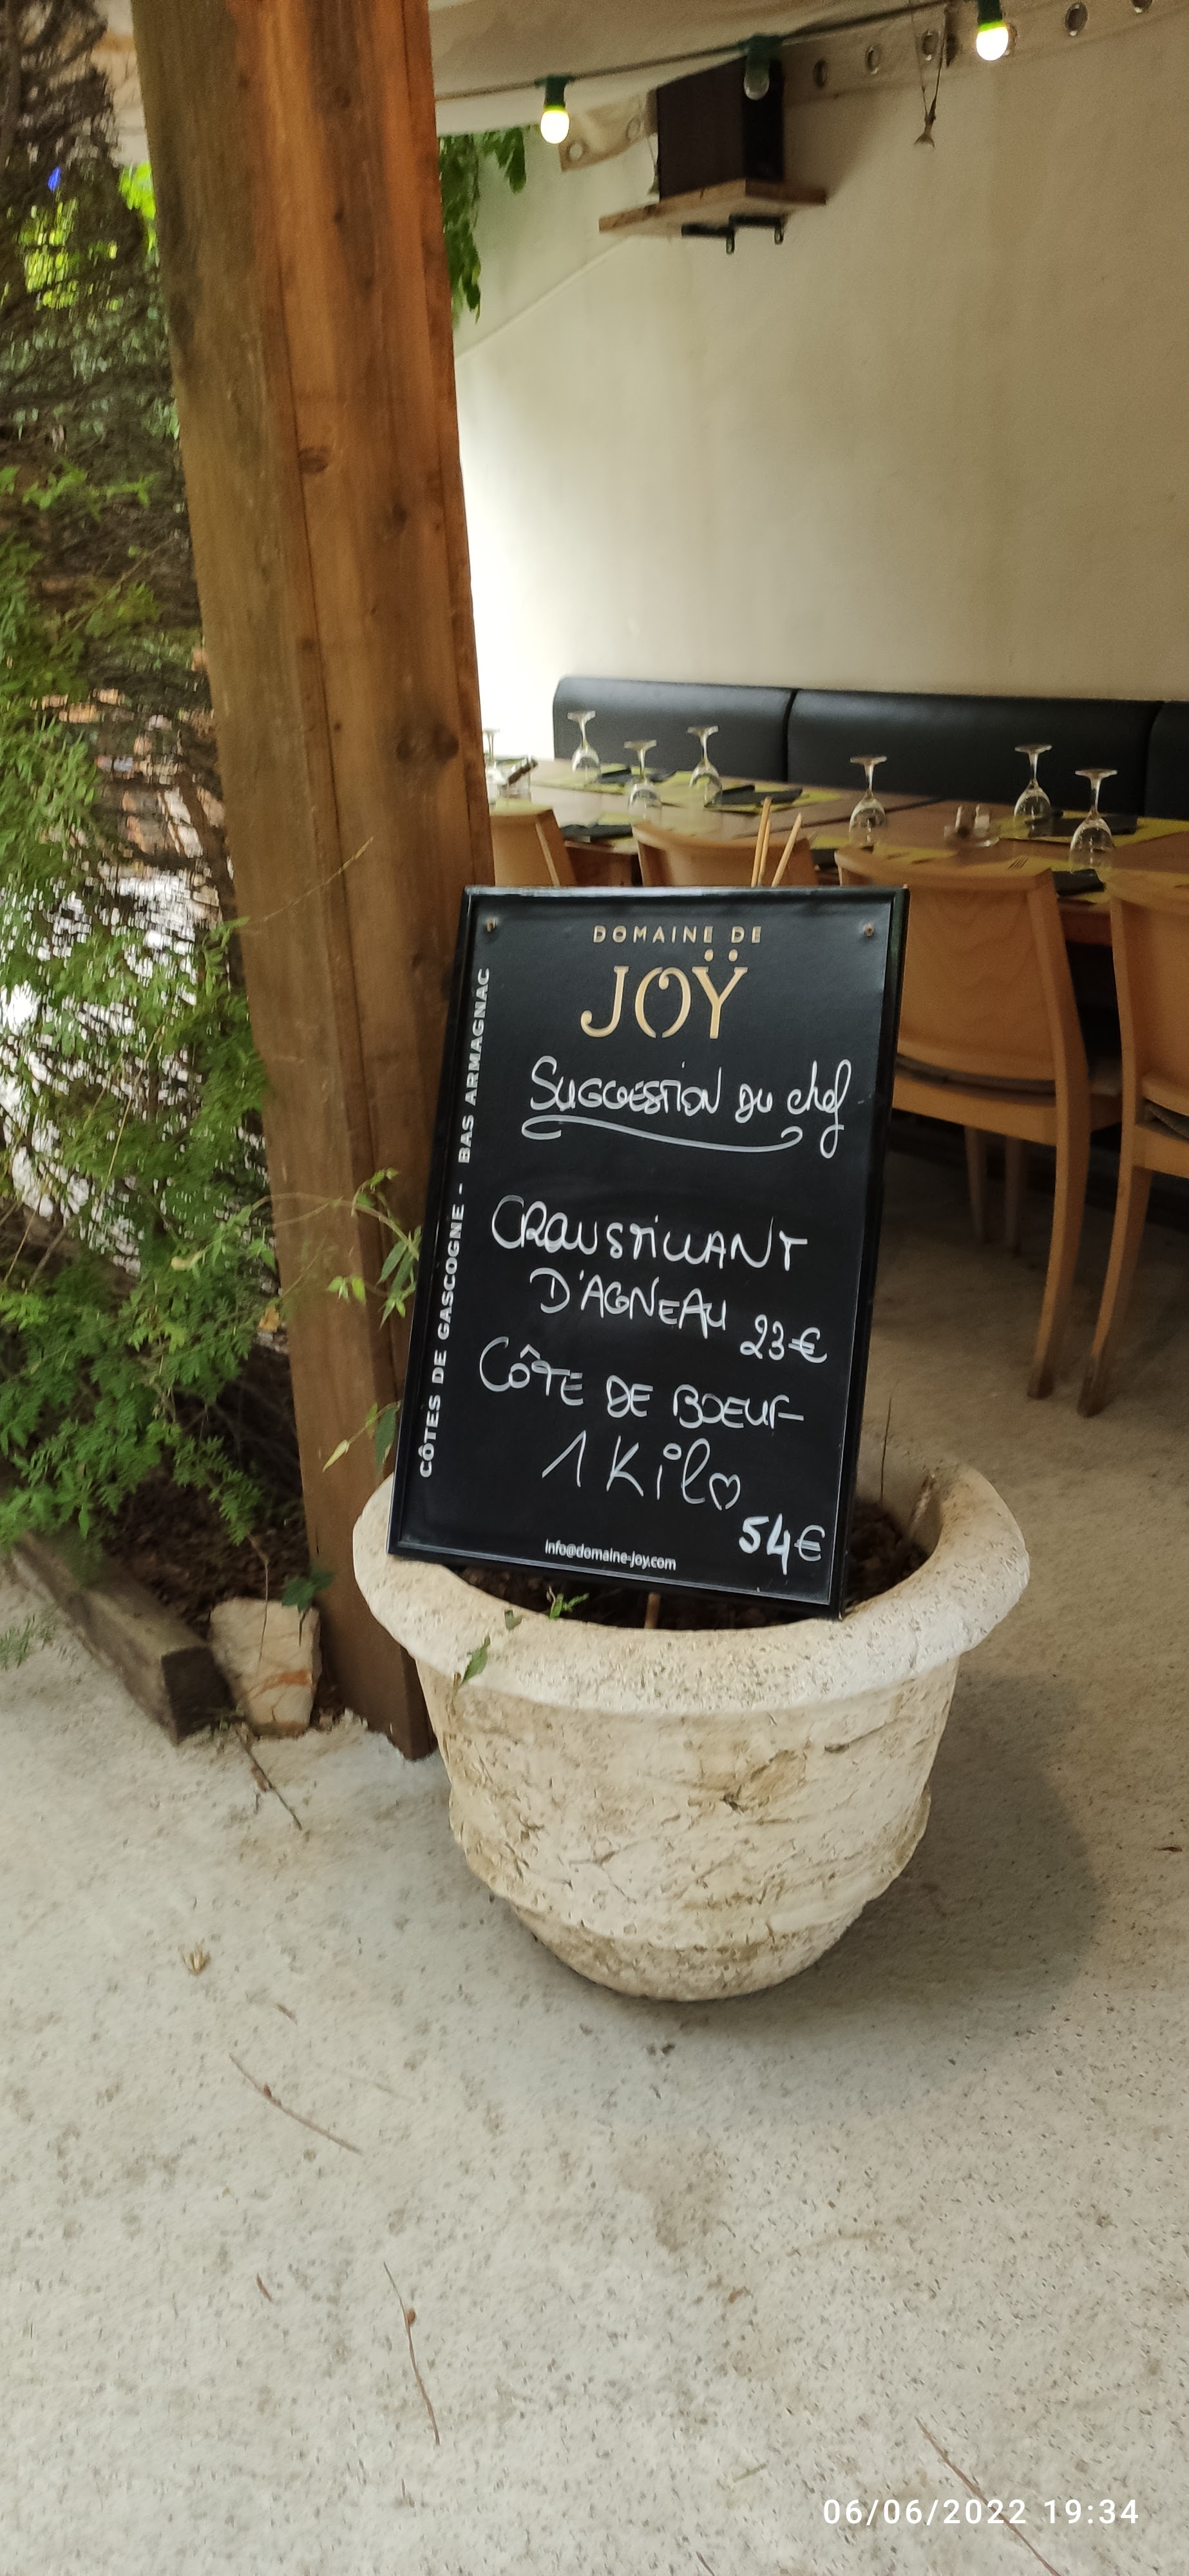 DOMAINE DE
JOŸ
CÔTES DE GASCOGNE - BAS ARMAGNAC
SUGGESTION DU chef
CROUSTILLANT
D'AGNEAU 23€
CÔTE DE BOEUF
1 Kilo
54€
info@domaine-joy.com
06/06/2022 19:34